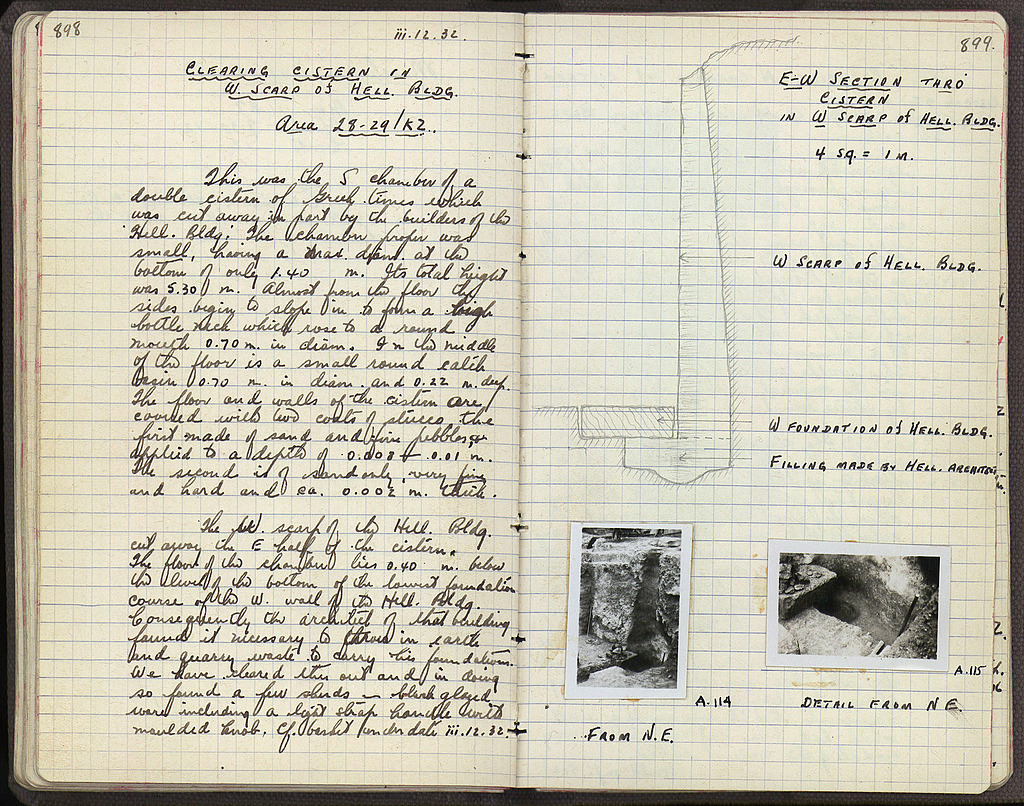 898
iii.12.32.
CLEARING CISTERN IN
W. SCARP of HELL. BLDG.
Area 28-29/KZ.
This was the S chamber of a
double cistern of Greek times which
was cut away in part by the builders of the
'Hell. Bldg.' The chamber proper was
small, having a max. diam. at the
bottom of only 1.40 m. Its total height
was 5.30 m. Almost from the floor the
sides begin to slope in to form a high
bottle neck which rose to a round
mouth 0.70 m. in diam. In the middle
of the floor is a small round catch
basin 0.70 m. in diam. and 0.22 m. deep.
The floor and walls of the cistern are
covered with two coats of stucco, the
first made of sand and fine pebbles &
applied to a depth of 0.008 – 0.01 m.
The second is of sand only, very fine
and hard and ca. 0.002 m. thick.
The W scarp of the Hell. Bldg.
cut away the E half of the cistern.
The floor of the chamber lies 0.40 m. below
the level of the bottom of the lowest foundation
course of the W. wall of the Hell. Bldg.
Consequently the architect of that building
found it necessary to throw in earth
and quarry waste to carry his foundations.
We have cleared this out and in doing
so found a few sherds – black glazed
ware including a light strap handle with
moulded knob. Cf. basket under date iii.12.32.
899.
E-W SECTION THRO
CISTERN
IN W SCARP of HELL. BLDG.
4 SQ. = 1 M.
W SCARP of HELL. BLDG.
W FOUNDATION of HELL. BLDG.
FILLING MADE BY HELL. ARCHITECT
A.114
FROM N.E.
A.115
DETAIL FROM N E.